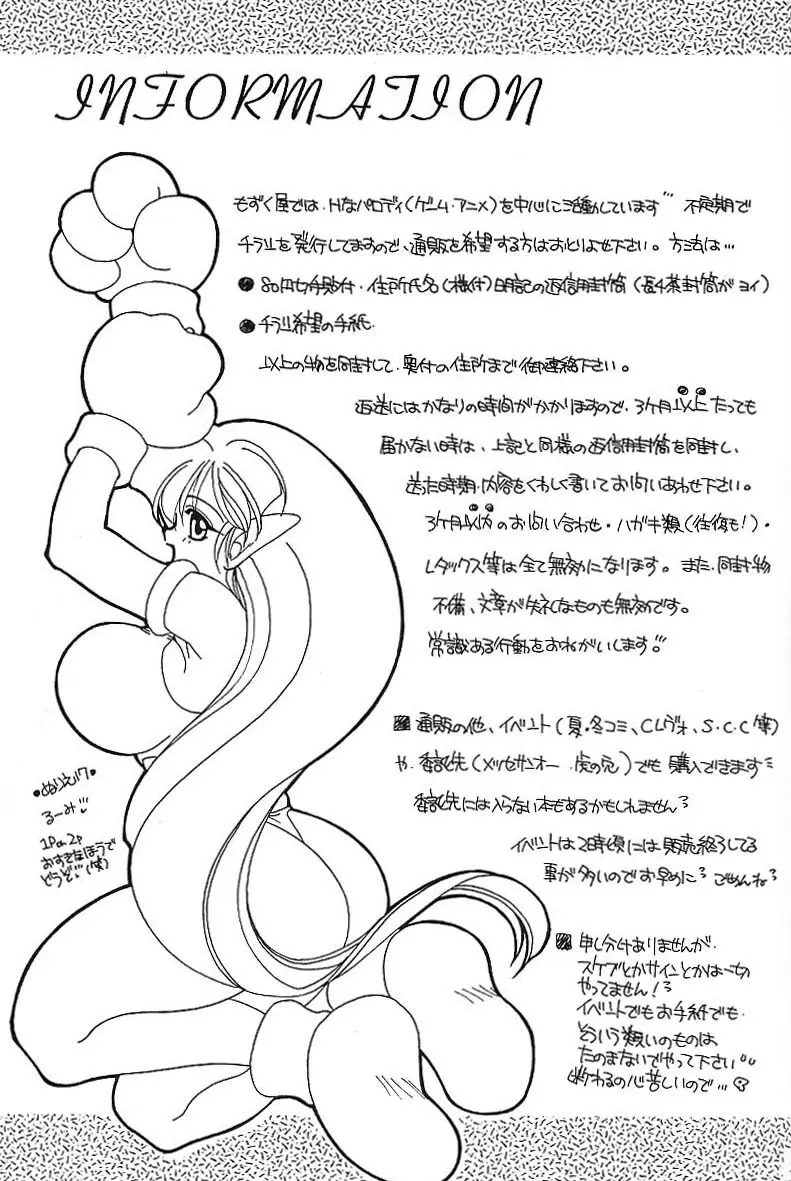 INFORMATION
もずく屋では、Hなパロディ(ゲーム・アニメ)を中心に活動しています 不定期で
チラシを発行してますので、通販を希望する方はおとりよせ下さい。方法は…
●80円切手貼付・住所氏名(様付)明記の返信用封筒(長4茶封筒がヨイ)
●チラシ希望の手紙
以上の物を同封して、奥付の住所まで御連絡下さい。
返送にはかなりの時間がかかりますので、3ケ月以上たっても
届かない時は、上記と同様の返信用封筒を同封し、
送た時期・内容をくわしく書いてお問いあわせ下さい。
3ケ月以内のお問い合わせ・ハガキ類(往復も!)・
Lタックス等は全て無効になります。また、同封物
不備、文章が失礼なものも無効です。
常識ある行動をおねがいします!!
■通販の他、イベント(夏・冬コミ、Cレヴォ、S.C.C等)
や、委託先(メッセサンオー、虎の穴)でも購入できます
委託先には入らない本もあるかもしれません
イベントは2時頃には販売終了してる
事が多いのでお早めに ごめんね
●ぬりえ
るーみ
1Por2P
おすきなほうで
どうぞ(笑)
■申し分けありませんが、
スケブとかサインとかは一切
やってません!
イベントでもお手紙でも、
そういう類いのものは
たのまないでやって下さい
断わるの心苦しいので…